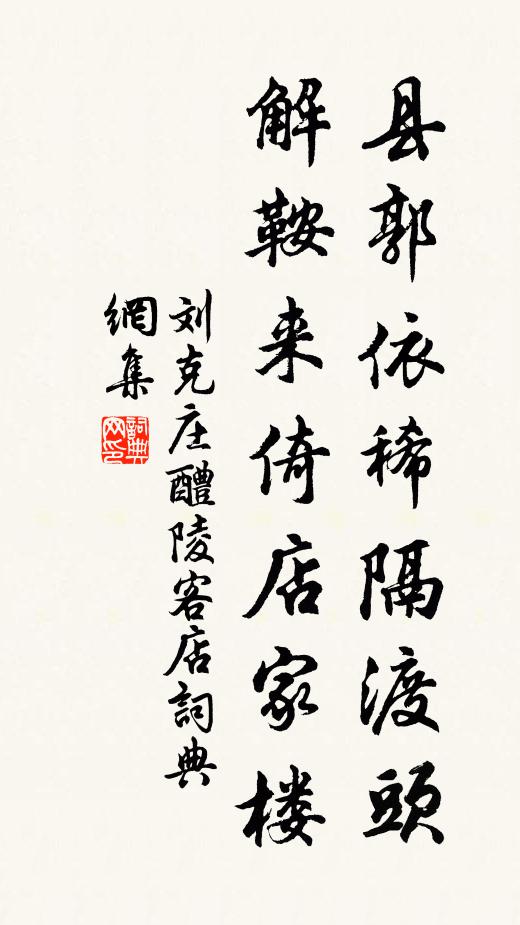 县郭依稀隔渡頭
解鞍来倚店家楼
刘克庄醴陵客店詞典
網集
詞典网印